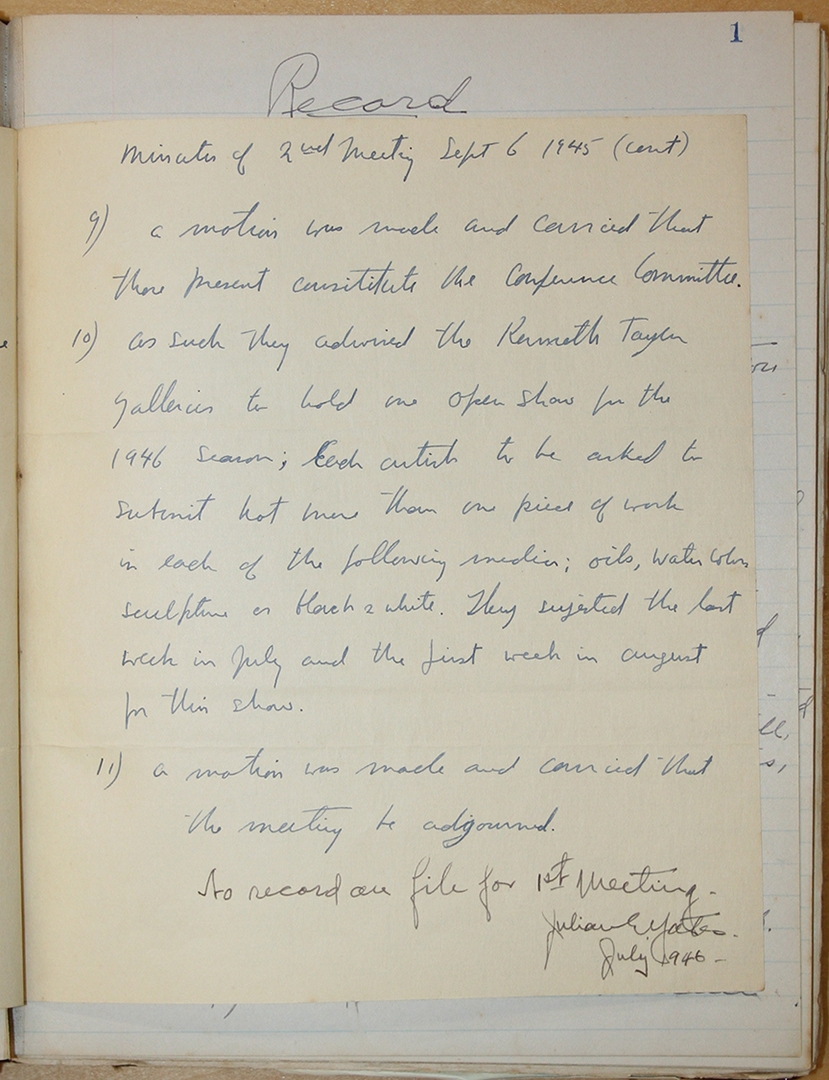 1
Record
Minutes of 2nd Meeting Sept 6 1945 (cont)
9) a motion was made and carried that
those present constitute the Conference Committee.
10) as such they advised the Kenneth Taylor
Galleries to hold one open show for the
1946 season; Each artist to be asked to
submit not more than one piece of work
in each of the following media; oils, water colors
sculpture or black & white. They sugested the last
week in July and the first week in august
for this show.
11) a motion was made and carried that
the meeting be adjourned.
No record on file for 1st Meeting.
Julian E Yates.
July 1946 -